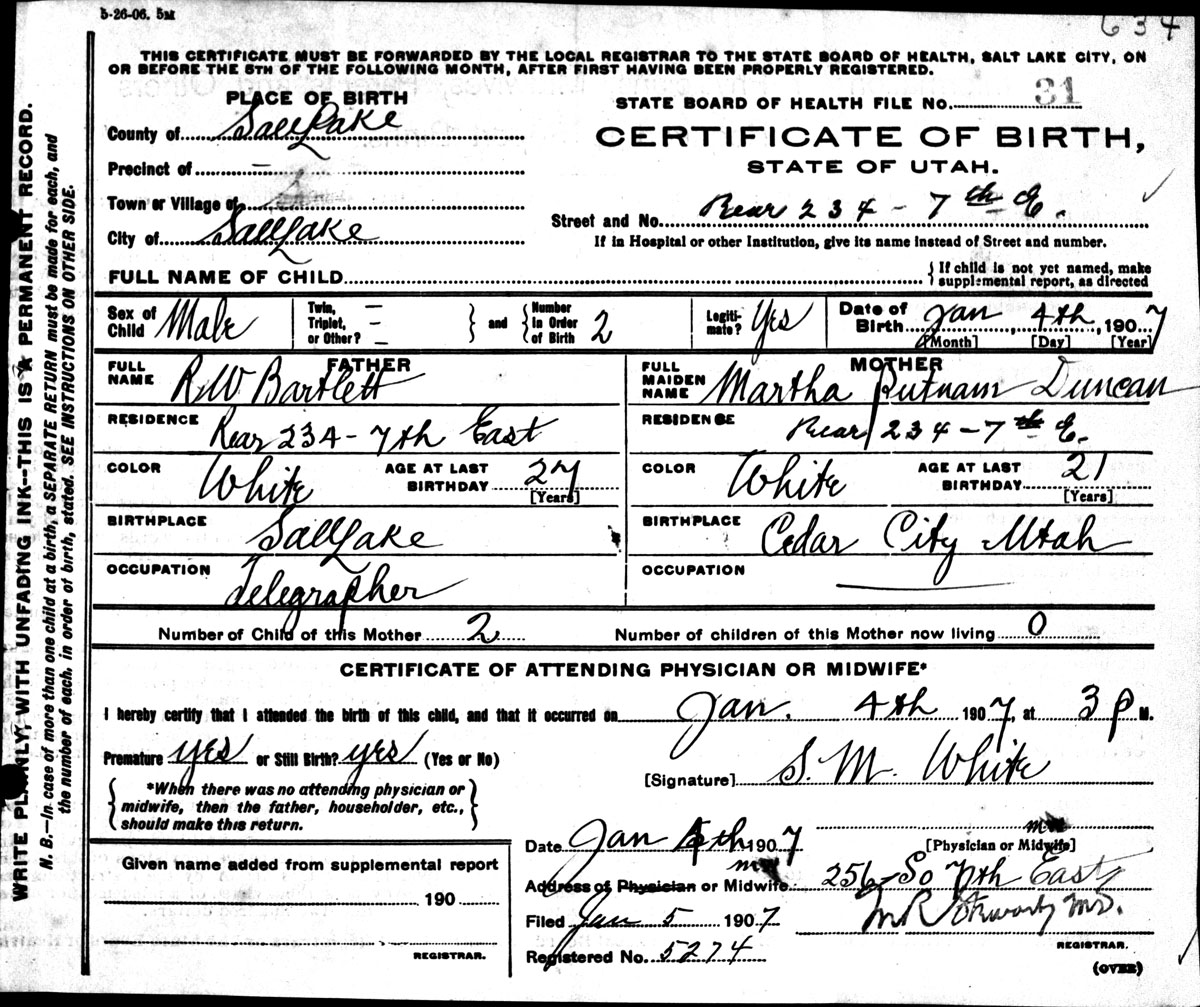 5-26-06. 5M
634
THIS CERTIFICATE MUST BE FORWARDED BY THE LOCAL REGISTRAR TO THE STATE BOARD OF HEALTH, SALT LAKE CITY, ON
OR BEFORE THE 5TH OF THE FOLLOWING MONTH, AFTER FIRST HAVING BEEN PROPERLY REGISTERED.
PLACE OF BIRTH
County of Salt Lake
Precinct of —
Town or Village of
City of Salt Lake
STATE BOARD OF HEALTH FILE No. 31
CERTIFICATE OF BIRTH,
STATE OF UTAH.
Street and No. Rear 234 - 7th E.
If in Hospital or other Institution, give its name instead of Street and number.
FULL NAME OF CHILD
{ If child is not yet named, make
supplemental report, as directed
Sex of Child Male
Twin, —
Triplet, —
or Other? —
} and { Number in Order of Birth 2
Legiti-mate? Yes
Date of Birth Jan, 4th, 1907
[Month] [Day] [Year]
FATHER
FULL NAME R W Bartlett
RESIDENCE Rear 234 - 7th East
COLOR White AGE AT LAST BIRTHDAY 27
[Years]
BIRTHPLACE Salt Lake
OCCUPATION Telegrapher
MOTHER
FULL MAIDEN NAME Martha Putnam Duncan
RESIDENCE Rear 234 - 7th E.
COLOR White AGE AT LAST BIRTHDAY 21
[Years]
BIRTHPLACE Cedar City Utah
OCCUPATION
Number of Child of this Mother 2 Number of children of this Mother now living 0
CERTIFICATE OF ATTENDING PHYSICIAN OR MIDWIFE*
I hereby certify that I attended the birth of this child, and that it occurred on Jan. 4th 1907, at 3 P M.
Premature yes or Still Birth? yes (Yes or No)
[Signature] S. M. White
{ *When there was no attending physician or
midwife, then the father, householder, etc.,
should make this return. }
[Physician or Midwife]
Date Jan 5th 1907
Address of Physician or Midwife 256 So 7th East
Filed Jan 5 1907
Registered No. 5274
M.D.
REGISTRAR.
(OVER)
Given name added from supplemental report
190
REGISTRAR.
WRITE PLAINLY, WITH UNFADING INK--THIS IS A PERMANENT RECORD.
N. B.—In case of more than one child at a birth, a SEPARATE RETURN must be made for each, and
the number of each, in order of birth, stated. SEE INSTRUCTIONS ON OTHER SIDE.